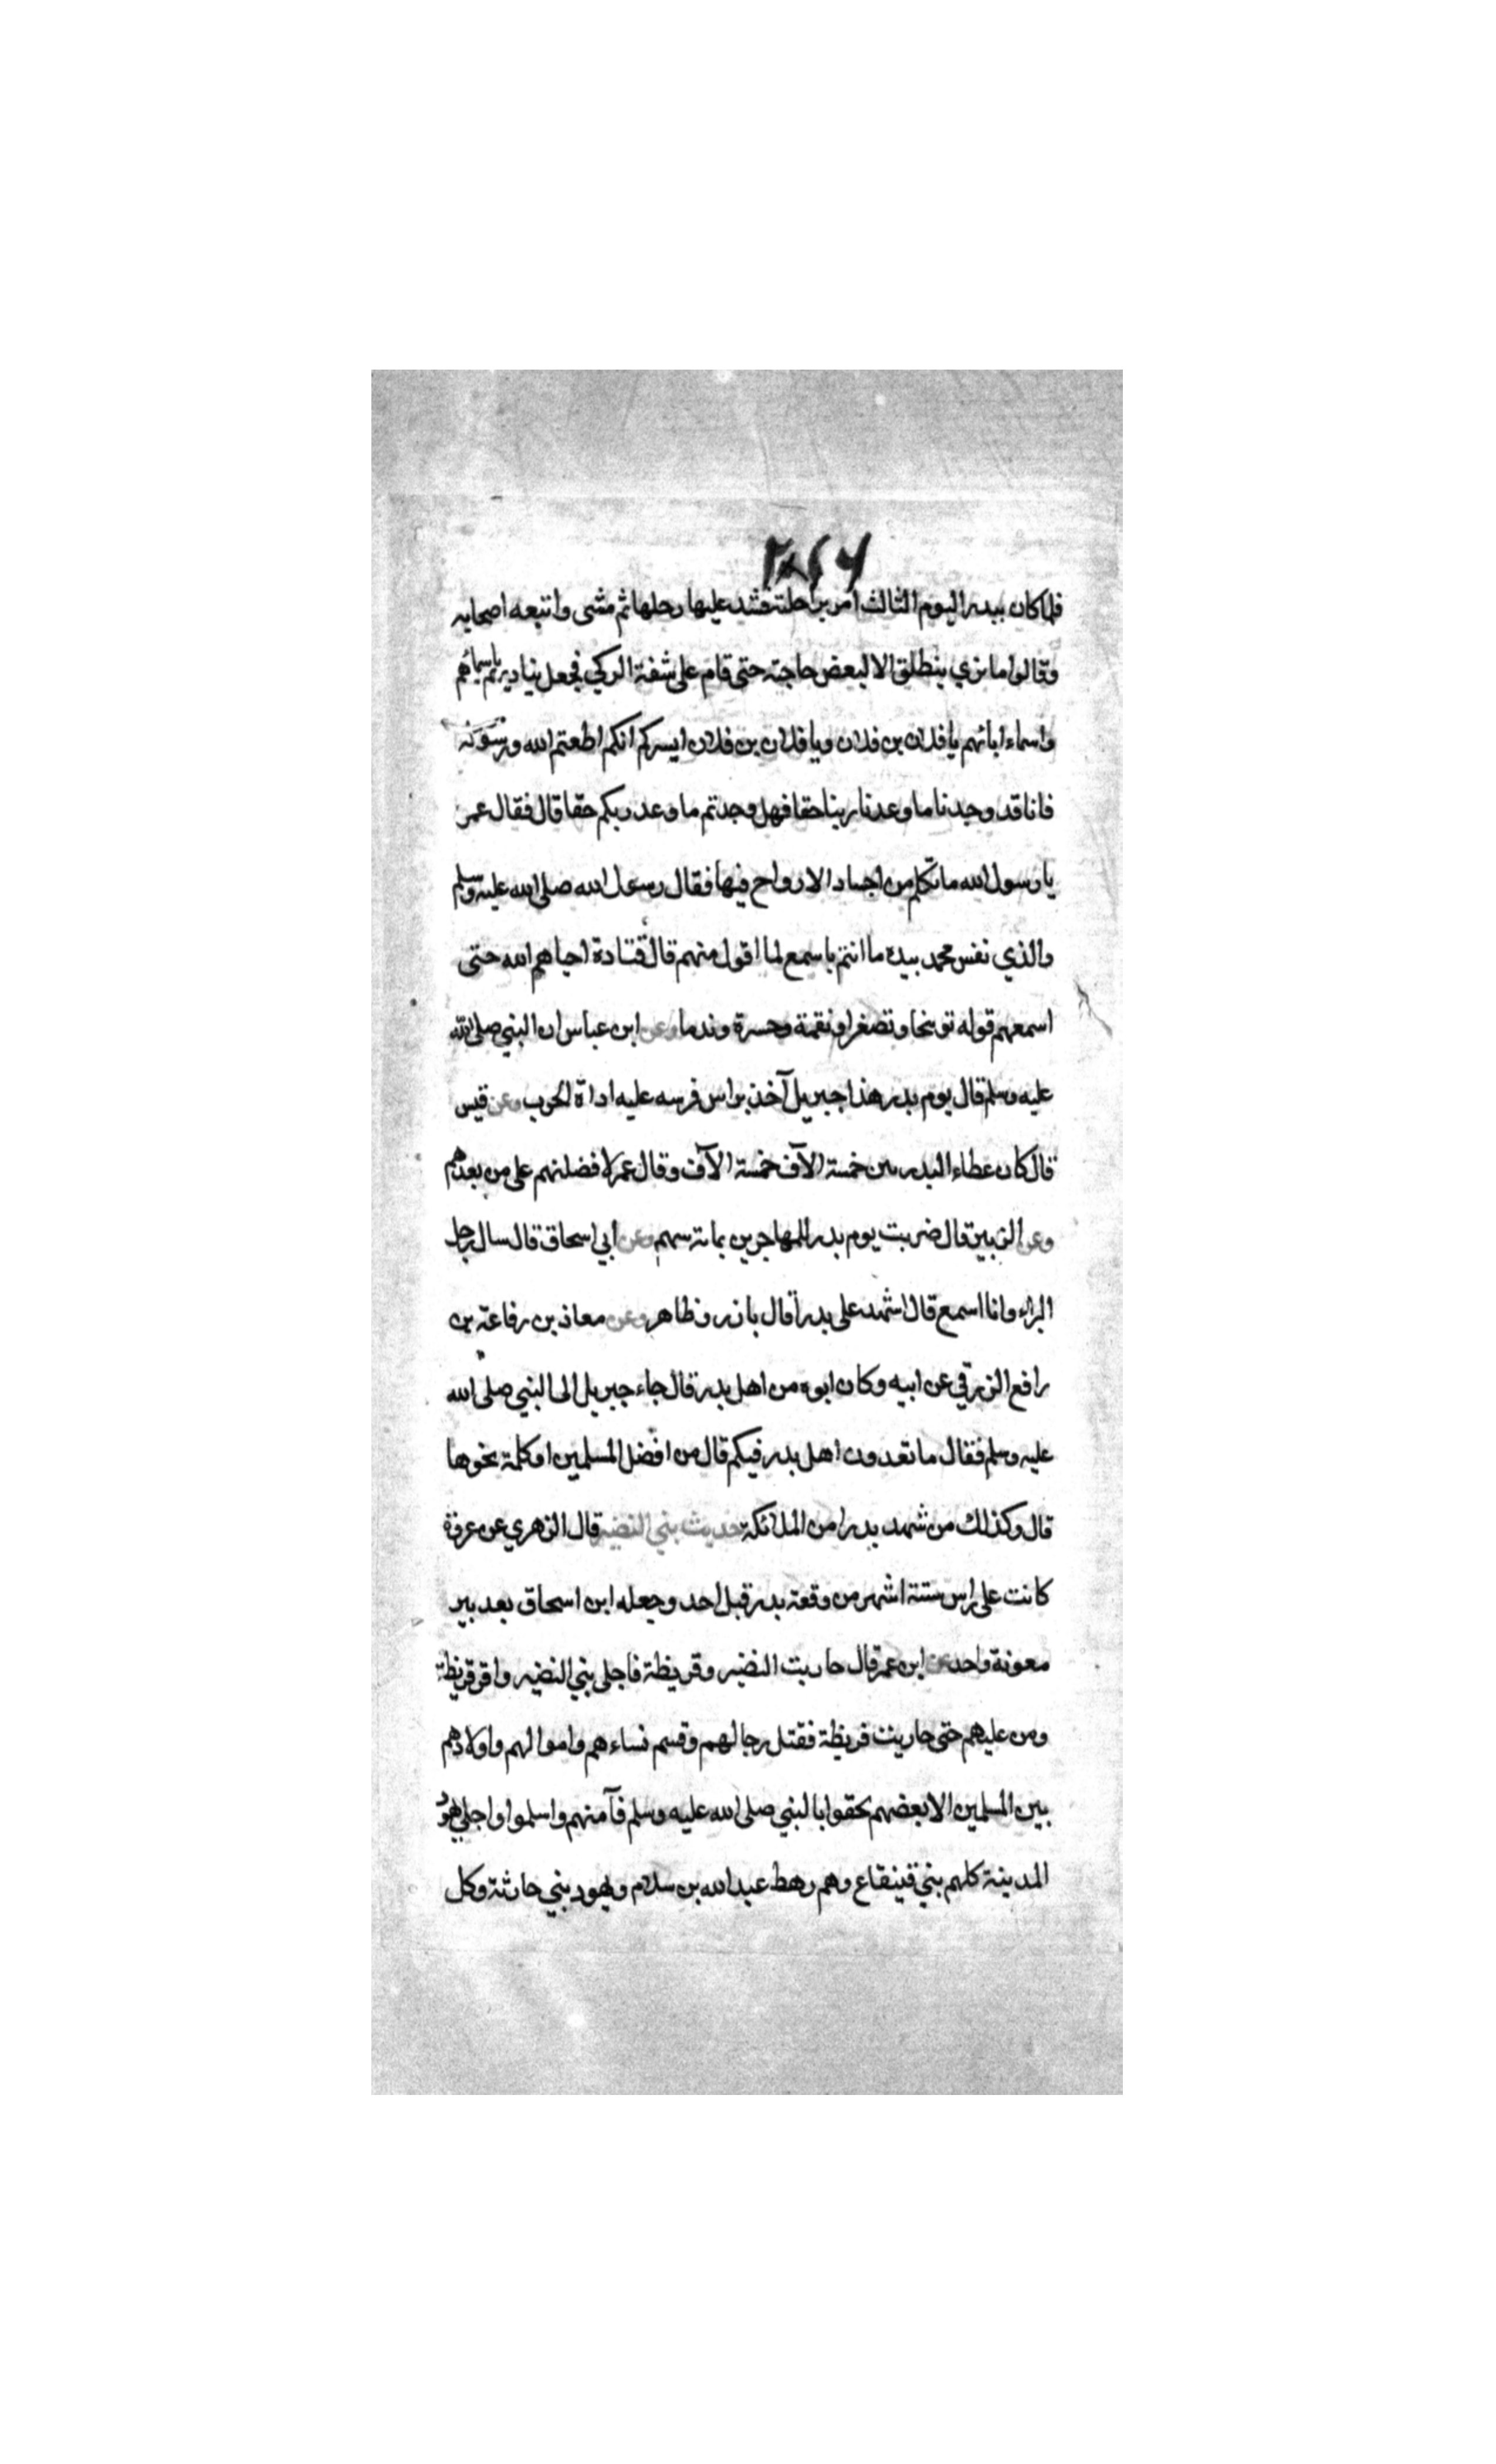 فلما كان ببدر اليوم الثالث امر براحلته فشد عليها رحلها ثم مشى واتبعه اصحابه
وقالوا ما نري ينطلق الا لبعض حاجته حتى قام على شفة الركي فجعل يناديهم باسمائهم
واسماء ابائهم يا فلان بن فلان ويا فلان بن فلان ايسركم انكم اطعتم الله ورسوله
فانا قد وجدنا ما وعدنا ربنا حقا فهل وجدتم ما وعد ربكم حقا قال فقال عمر
يا رسول الله ما تكلم من اجساد الا رواح فيها فقال رسول الله صلى الله عليه وسلم
والذي نفس محمد بيده ما انتم باسمع لما اقول منهم قال قتادة احياهم الله حتى
اسمعهم قوله توبيخا وتصغرا ونقمة وحسرة وندما وعن ابن عباس ان النبي صلى الله
عليه وسلم قال يوم بدر هذا جبريل آخذ براس فرسه عليه اداة الحرب وعن قيس
قال كان عطاء البدريين خمسة الآف خمسة الآف وقال عمر لا فضلنهم على من بعدهم
وعن الزبير قال ضربت يوم بدر للمهاجرين بمائة سهم وعن ابي اسحاق قال سال رجل
البراء وانا اسمع قال اشهد على بدرا قال بارز وظاهر وعن معاذ بن رفاعة بن
رافع الزرقي عن ابيه وكان ابوه من اهل بدر قال جاء جبريل الى النبي صلى الله
عليه وسلم فقال ما تعدون اهل بدر فيكم قال من افضل المسلمين او كلمة نحوها
قال وكذلك من شهد بدرا من الملائكة حديث بني النضير قال الزهري عن عروة
كانت على راس ستة اشهر من وقعة بدر قبل احد وجعله ابن اسحاق بعد بير
معونة واحد عن ابن عمر قال حاربت النضير وقريظة فاجلى بني النضير واقر قريظة
ومن عليهم حتى حاربت قريظة فقتل رجالهم وقسم نساءهم واموالهم واولادهم
بين المسلمين الا بعضهم لحقوا بالنبي صلى الله عليه وسلم فآمنهم واسلموا واجلي يهود
المدينة كلهم بني قينقاع وهم رهط عبد الله بن سلام ويهود بني حارثة وكل